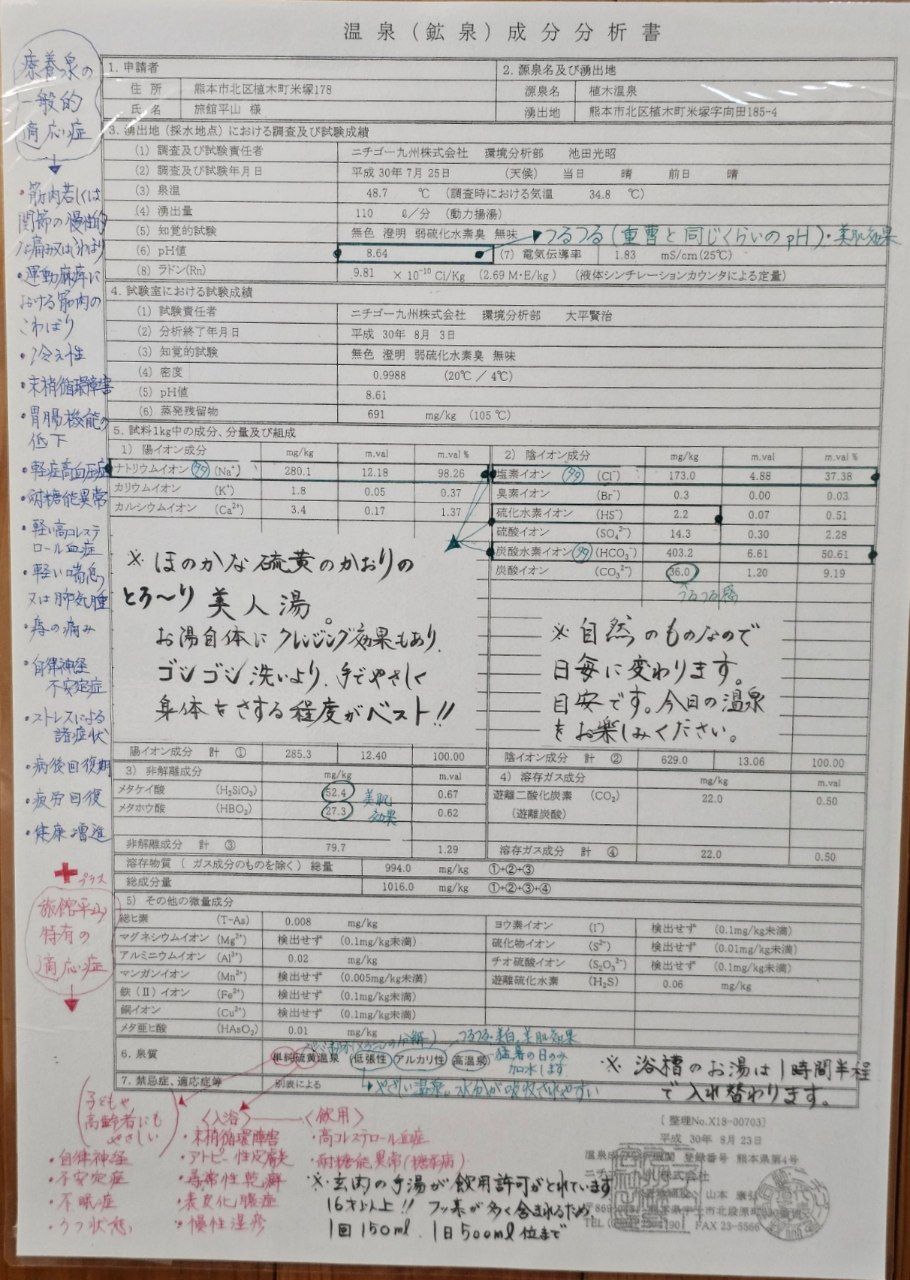 温泉（鉱泉）成分分析書
療養泉の
一般的
適応症
・筋肉若しくは
関節の慢性的
な痛み又はこわばり
・運動麻痺に
おける筋肉の
こわばり
・冷え性
・末梢循環障害
・胃腸機能の
低下
・軽症高血圧症
・耐糖能異常
・軽い高コレステ
ロール血症
・軽い喘息
又は肺気腫
・痔の痛み
・自律神経
不安定症
・ストレスによる
諸症状
・病後回復期
・疲労回復
・健康増進
＋プラス
旅館平山
特有の
適応症
1. 申請者
住所 熊本市北区植木町米塚178
氏名 旅館平山 様
2. 源泉名及び湧出地
源泉名 植木温泉
湧出地 熊本市北区植木町米塚字向田185-4
3. 湧出地（採水地点）における調査及び試験成績
(1) 調査及び試験責任者 ニチゴー九州株式会社 環境分析部 池田光昭
(2) 調査及び試験年月日 平成 30年 7月 25日 （天候） 当日 晴 前日 晴
(3) 泉温 48.7 ℃ （調査時における気温 34.8 ℃）
(4) 湧出量 110 ℓ/分 （動力揚湯）
(5) 知覚的試験 無色 澄明 弱硫化水素臭 無味
つるつる（重曹と同じくらいのpH）・美肌効果
(6) pH値 8.64 (7) 電気伝導率 1.83 mS/cm(25℃)
(8) ラドン(Rn) 9.81 × 10⁻¹⁰ Ci/Kg (2.69 M・E/kg) （液体シンチレーションカウンタによる定量）
4. 試験室における試験成績
(1) 試験責任者 ニチゴー九州株式会社 環境分析部 太平賢治
(2) 分析終了年月日 平成 30年 8月 3日
(3) 知覚的試験 無色 澄明 弱硫化水素臭 無味
(4) 密度 0.9988 (20℃ / 4℃)
(5) pH値 8.61
(6) 蒸発残留物 691 mg/kg (105 ℃)
5. 試料1kg中の成分、分量及び組成
1) 陽イオン成分 mg/kg m.val m.val %
ナトリウムイオン (Na⁺) 280.1 12.18 98.26
カリウムイオン (K⁺) 1.8 0.05 0.37
カルシウムイオン (Ca²⁺) 3.4 0.17 1.37
※ほのかな硫黄のかおりの
とろ〜り美人湯。
お湯自体にクレンジング効果もあり、
ゴシゴシ洗いより、手でやさしく
身体をさする程度がベスト!!
陽イオン成分 計 ① 285.3 12.40 100.00
2) 陰イオン成分 mg/kg m.val m.val %
塩素イオン (Cl⁻) 173.0 4.88 37.38
臭素イオン (Br⁻) 0.3 0.00 0.03
硫化水素イオン (HS⁻) 2.2 0.07 0.51
硫酸イオン (SO₄²⁻) 14.3 0.30 2.28
炭酸水素イオン (HCO₃⁻) 403.2 6.61 50.61
炭酸イオン (CO₃²⁻) 36.0 1.20 9.19
つるつる感
※自然のものなので
日毎に変わります。
目安です。今日の温泉
をお楽しみください。
陰イオン成分 計 ② 629.0 13.06 100.00
3) 非解離成分 mg/kg m.val
メタケイ酸 (H₂SiO₃) 52.4 0.67
メタホウ酸 (HBO₂) 27.3 0.62
美肌
効果
非解離成分 計 ③ 79.7 1.29
4) 溶存ガス成分 mg/kg m.val
遊離二酸化炭素 (CO₂) 22.0 0.50
（遊離炭酸）
溶存ガス成分 計 ④ 22.0 0.50
溶存物質（ ガス成分のものを除く）総量 994.0 mg/kg ①+②+③
総成分量 1016.0 mg/kg ①+②+③+④
5) その他の微量成分
総ヒ素 (T-As) 0.008 mg/kg
マグネシウムイオン (Mg²⁺) 検出せず (0.1mg/kg未満)
アルミニウムイオン (Al³⁺) 0.02 mg/kg
マンガンイオン (Mn²⁺) 検出せず (0.005mg/kg未満)
鉄(Ⅱ)イオン (Fe²⁺) 検出せず (0.1mg/kg未満)
銅イオン (Cu²⁺) 検出せず (0.1mg/kg未満)
メタ亜ヒ酸 (HAsO₂) 0.01 mg/kg
ヨウ素イオン (I⁻) 検出せず (0.1mg/kg未満)
硫化物イオン (S²⁻) 検出せず (0.01mg/kg未満)
チオ硫酸イオン (S₂O₃²⁻) 検出せず (0.1mg/kg未満)
遊離硫化水素 (H₂S) 0.06 mg/kg
つるつる・美白、美肌効果
6. 泉質 単純硫黄温泉 （低張性 アルカリ性 高温泉）
猛暑の日のみ
加水します
7. 禁忌症、適応症等 別表による
やさしい温泉。水分が吸収されやすい
※浴槽のお湯は1時間半程
で入れ替わります。
子どもや
高齢者にも
やさしい
・自律神経
・不安定症
・不眠症
・うつ状態
〈入浴〉
・末梢循環障害
・アトピー性皮膚炎
・尋常性乾癬
・表皮化膿症
・慢性湿疹
〈飲用〉
・高コレステロール血症
・耐糖能異常（糖尿病）
※玄関の手湯が飲用許可がとれています
16才以上!! フッ素が多く含まれるため、
1回150ml、1日500ml位まで
[ 整理No.X18-00703]
平成 30年 8月 23日
登録番号 熊本県第4号
FAX 23-5566